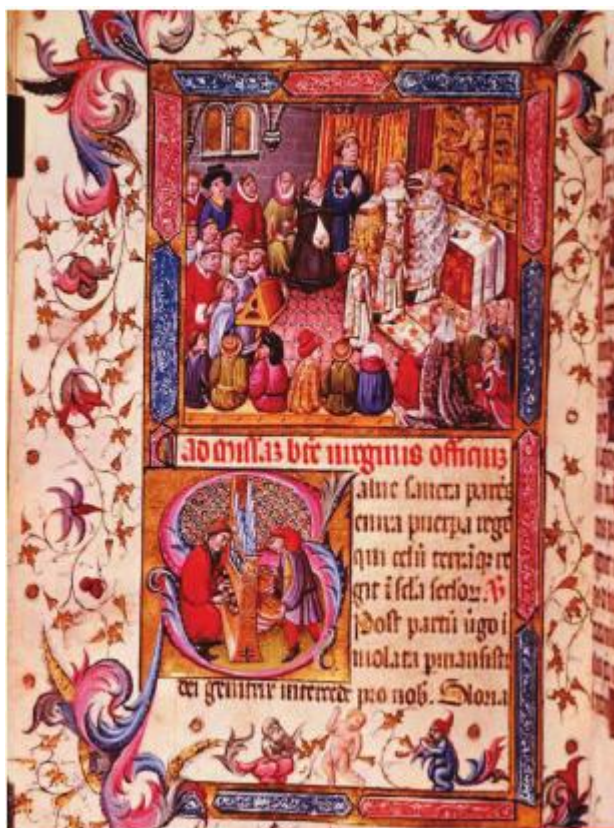 ad missaz bte virginis officiuz
Salue sancta parēs
enixa puerpa rege
qui celū terrāqz re
git ī scła scłoꝝ. V
Post partū v̇go ī
uiolata pmansisti
dei genitrix intercede pro nob. Gloria